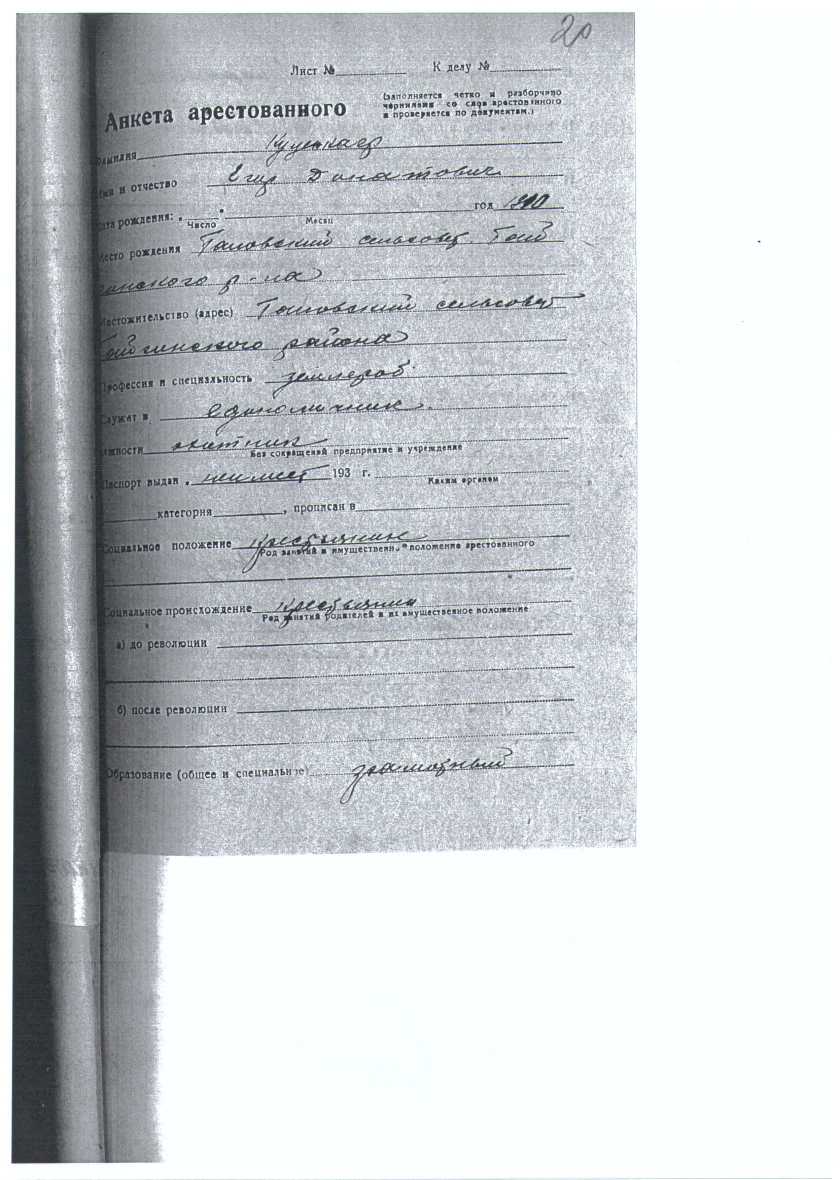 20
Лист № К делу №
Анкета арестованного
(заполняется четко и разборчиво
чернилами со слов арестованного
и проверяется по документам.)
амилия
мя и отчество Егор Донатович
ата рождения: " " год
Число Месяц
Место рождения сельсовет
р-на
Местожительство (адрес) сельсовет
района
Профессия и специальность землероб
Служит в единоличник
лжности
Без сокращений предприятие и учреждение
Паспорт выдан " не имеет 193 г.
Каким органом
категория , прописан в
Социальное положение крестьянин
Род занятий и имуществен. положение арестованного
Социальное происхождение крестьянин
Род занятий родителей и их имущественное положение
а) до революции
б) после революции
Образование (общее и специальное) грамотный